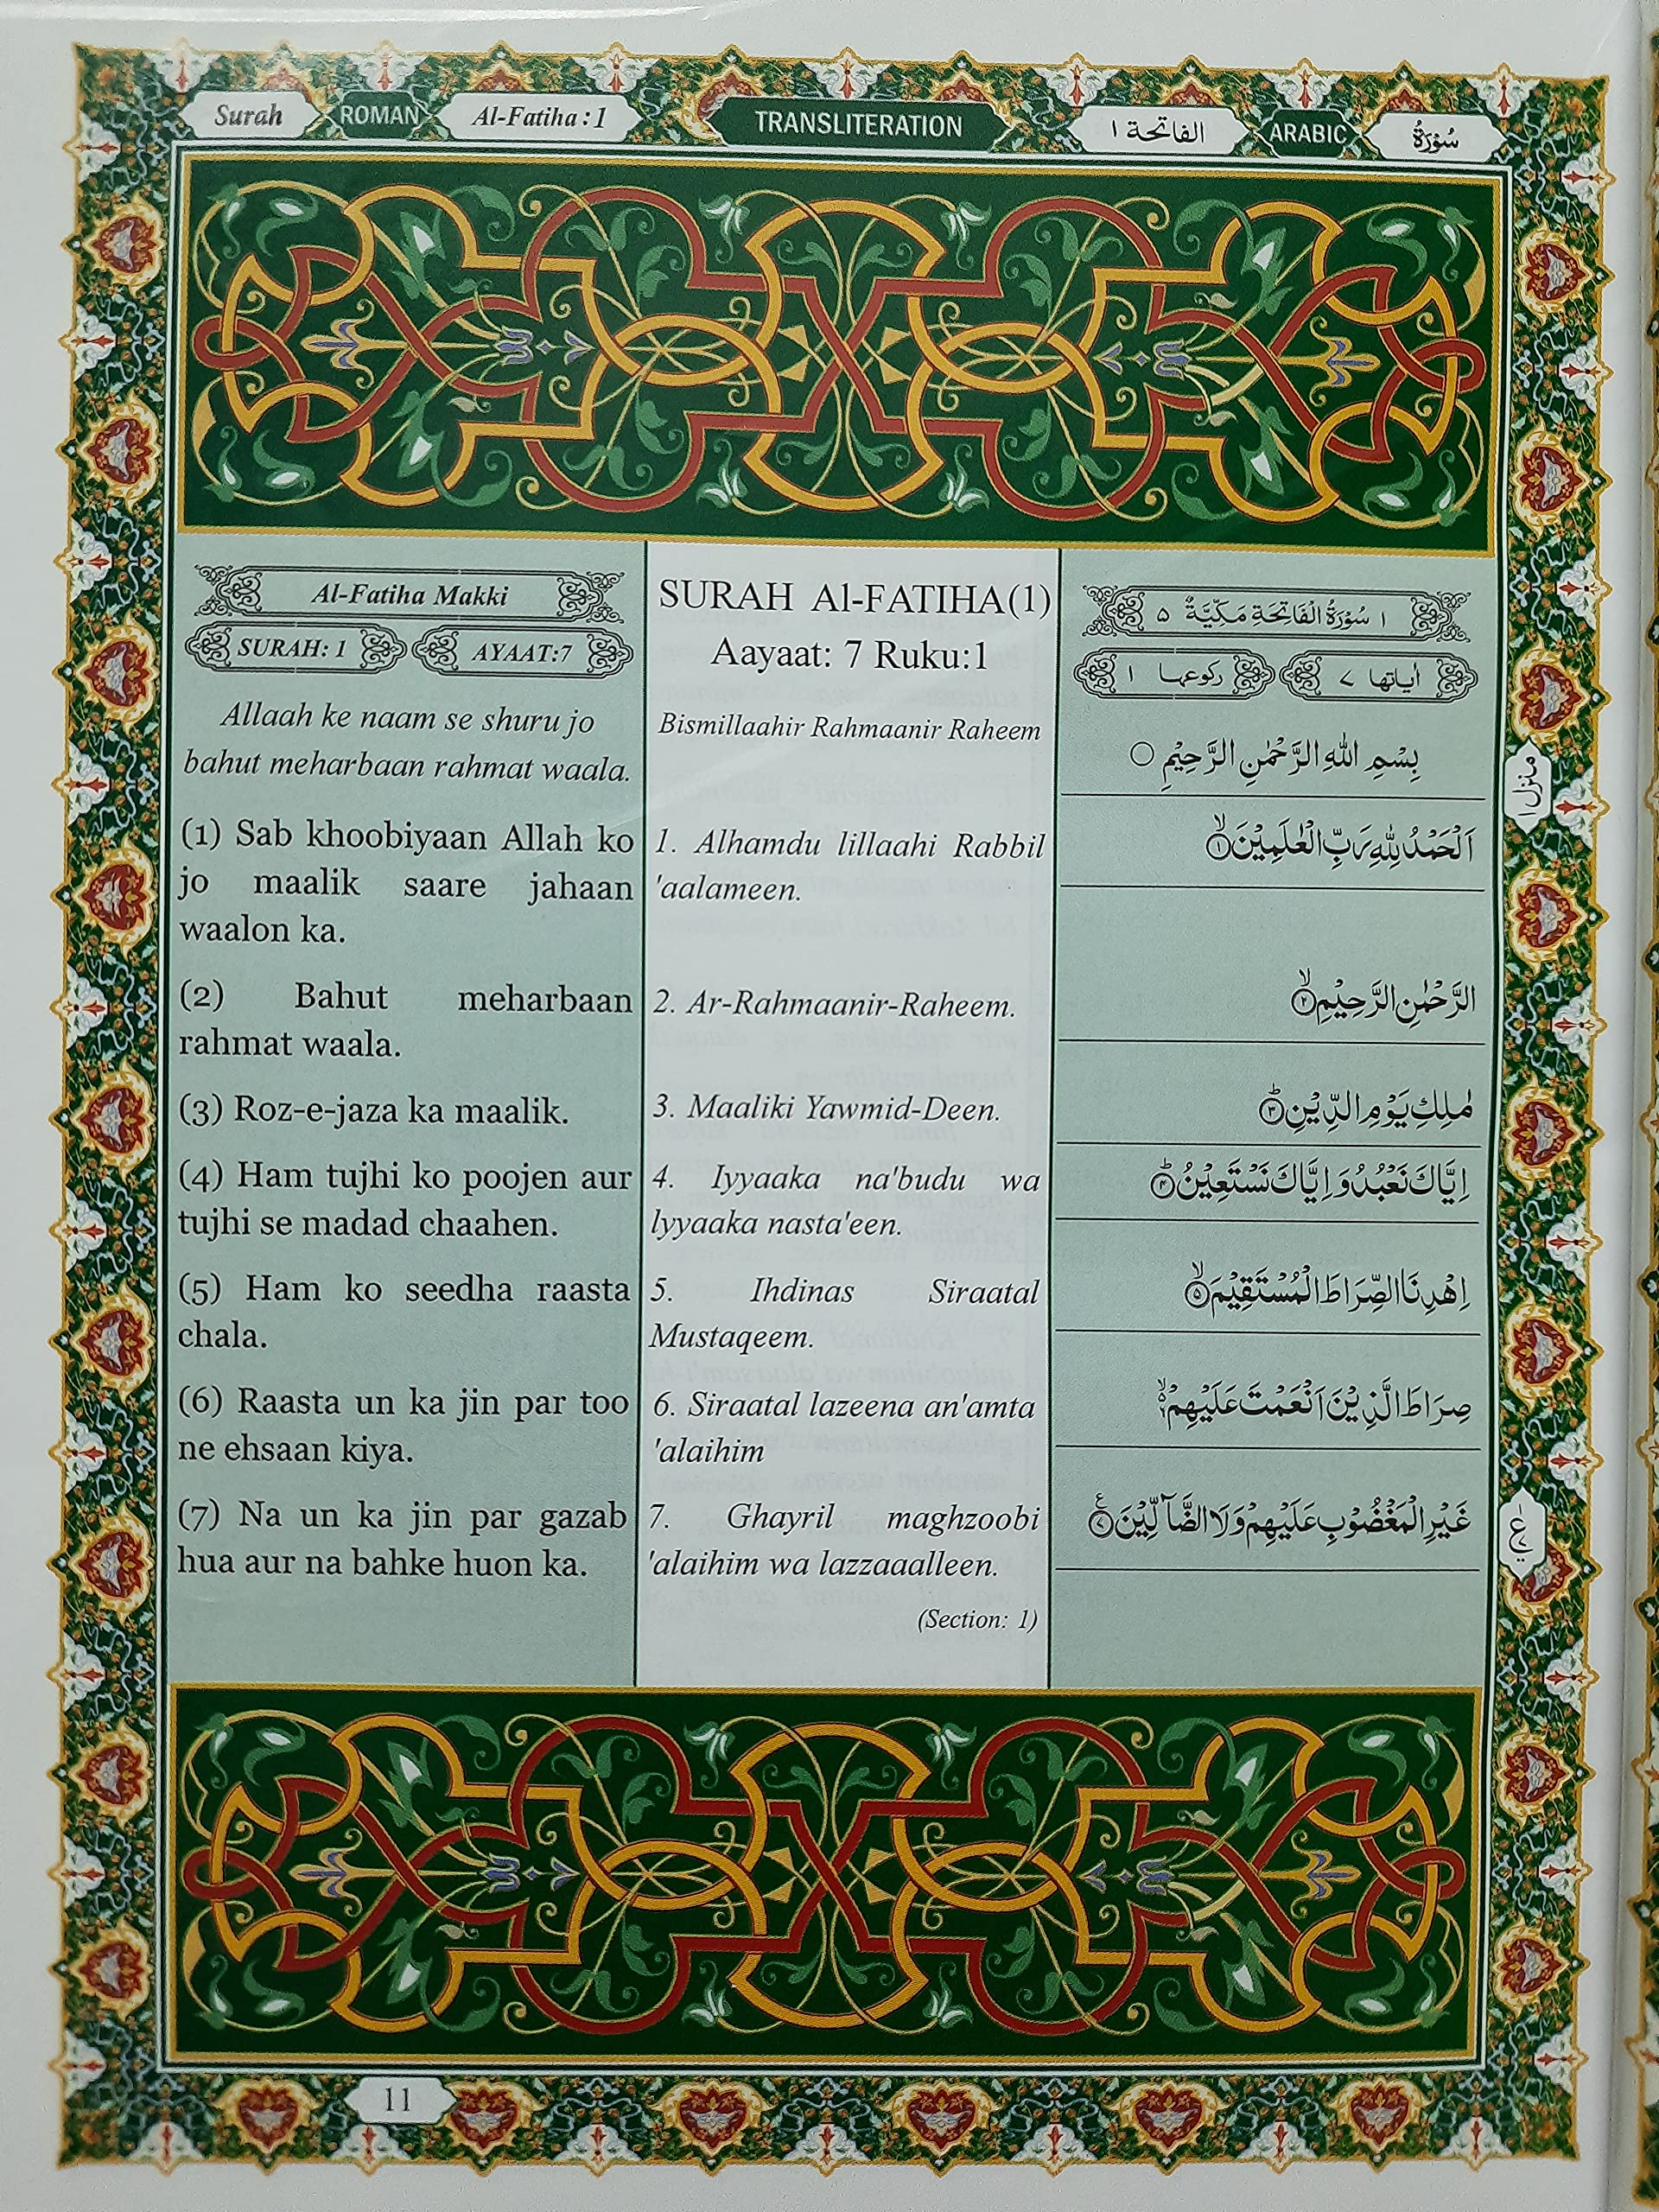 Surah
ROMAN
Al-Fatiha : 1
TRANSLITERATION
الفاتحة ١
ARABIC
سُوْرَةُ
Al-Fatiha Makki
SURAH: 1
AYAAT:7
Allaah ke naam se shuru jo
bahut meharbaan rahmat waala.
(1) Sab khoobiyaan Allah ko
jo maalik saare jahaan
waalon ka.
(2) Bahut meharbaan
rahmat waala.
(3) Roz-e-jaza ka maalik.
(4) Ham tujhi ko poojen aur
tujhi se madad chaahen.
(5) Ham ko seedha raasta
chala.
(6) Raasta un ka jin par too
ne ehsaan kiya.
(7) Na un ka jin par gazab
hua aur na bahke huon ka.
SURAH Al-FATIHA(1)
Aayaat: 7 Ruku:1
Bismillaahir Rahmaanir Raheem
1. Alhamdu lillaahi Rabbil
'aalameen.
2. Ar-Rahmaanir-Raheem.
3. Maaliki Yawmid-Deen.
4. Iyyaaka na'budu wa
lyyaaka nasta'een.
5. Ihdinas Siraatal
Mustaqeem.
6. Siraatal lazeena an'amta
'alaihim
7. Ghayril maghzoobi
'alaihim wa lazzaaalleen.
(Section: 1)
١ سُوْرَةُ الْفَاتِحَةِ مَكِّيَّةٌ ٥
اٰياتها ٧
ركوعها ١
بِسْمِ اللّٰهِ الرَّحْمٰنِ الرَّحِيْمِ ○
اَلْحَمْدُ لِلّٰهِ رَبِّ الْعٰلَمِيْنَ ۙ‏﴿۱﴾
الرَّحْمٰنِ الرَّحِيْمِ ۙ‏﴿۲﴾
مٰلِكِ يَوْمِ الدِّيْنِ ؕ‏﴿۳﴾
اِيَّاكَ نَعْبُدُ وَ اِيَّاكَ نَسْتَعِيْنُ ؕ‏﴿۴﴾
اِهْدِنَا الصِّرَاطَ الْمُسْتَقِيْمَ ۙ‏﴿۵﴾
صِرَاطَ الَّذِيْنَ اَنْعَمْتَ عَلَيْهِمْ ۙ
غَيْرِ الْمَغْضُوْبِ عَلَيْهِمْ وَلَا الضَّآلِّيْنَ ﴿۷﴾
منزل ١
ع
11